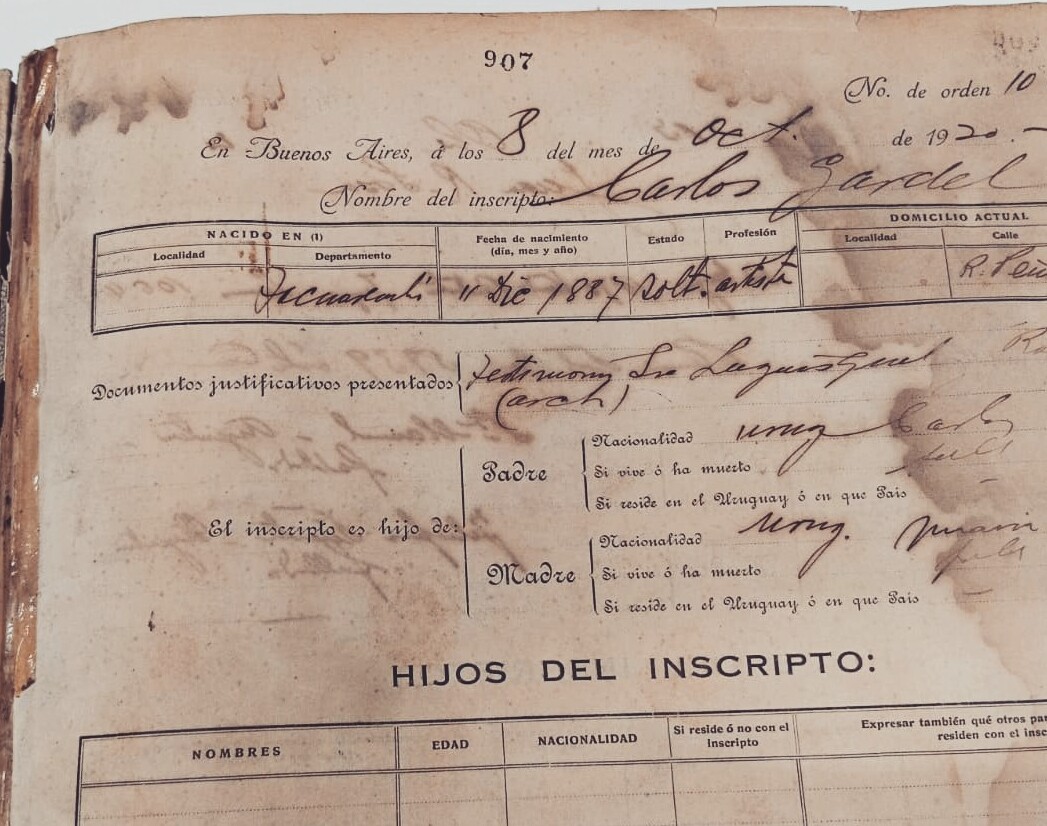 907
No. de orden 10
En Buenos Aires, á los 8 del mes de Oct. de 1920.-
Nombre del inscripto: Carlos Gardel
NACIDO EN (1) Fecha de nacimiento Estado Profesión DOMICILIO ACTUAL
Localidad Departamento (día, mes y año) Localidad Calle
11 Dic 1887 solt. artista R. Peñ
Documentos justificativos presentados
(arch)
El inscripto es hijo de:
Padre
Nacionalidad urug Carlos
Si vive ó ha muerto
Si reside en el Uruguay ó en que Pais
Madre
Nacionalidad Urug.
Si vive ó ha muerto
Si reside en el Uruguay ó en que Pais
HIJOS DEL INSCRIPTO:
NOMBRES EDAD NACIONALIDAD Si reside ó no con el Expresar también qué otros par
inscripto residen con el insc